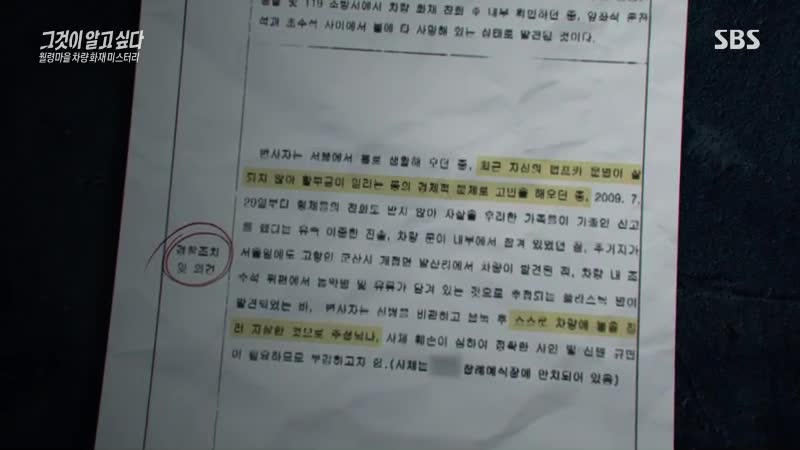 그것이 알고 싶다
월령마을 차량 화재 미스터리
SBS
119 소방서에서 차량 화재 진화 후 내부 확인하던 중, 앞좌석 운전
석과 조수석 사이에서 불에 타 사망해 있는 상태로 발견된 것이다.
변사자는 서울에서 홀로 생활해 오던 중, 최근 자신의 덤프카 운행이 잘
되지 않아 할부금이 밀리는 등의 경제적 문제로 고민을 해오던 중, 2009. 7.
29일부터 형제들의 전화도 받지 않아 자살을 우려한 가족들이 기종인 신고
를 했다는 유족 이종한 진술, 차량 문이 내부에서 잠겨 있었던 점, 주거지가
서울임에도 고향인 군산시 개정면 발산리에서 차량이 발견된 점, 차량 내 조
수석 뒤편에서 농약병 및 유류가 담겨 있는 것으로 추정되는 플라스틱 병이
발견되었는 바, 변사자는 신병을 비관하고 음독 후 스스로 차량에 불을 질
러 자살한 것으로 추정되나, 사체 훼손이 심하여 정확한 사인 및 신원 규명
이 필요하므로 부검하고자 함.(사체는 장례예식장에 안치되어 있음)
경찰조치
및 의견